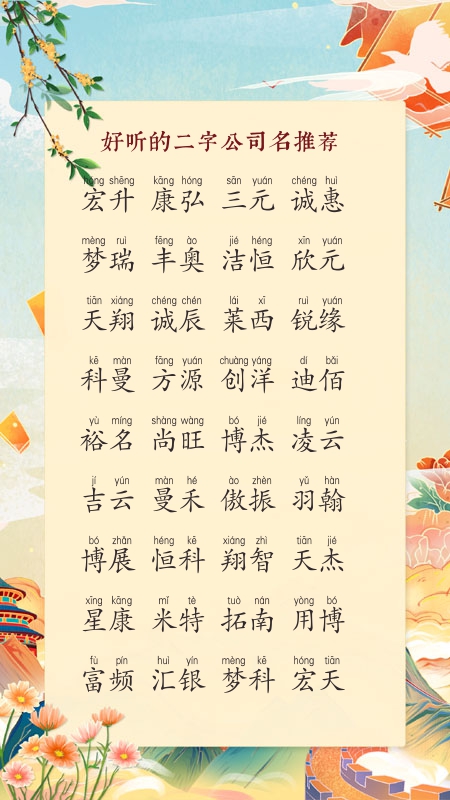 好听的二字公司名推荐
hóng shēng kāng hóng sān yuán chéng huì
宏升 康弘 三元 诚惠
mèng ruì fēng ào jié héng xīn yuán
梦瑞 丰奥 洁恒 欣元
tiān xiáng chéng chén lái xī ruì yuán
天翔 诚辰 莱西 锐缘
kē màn fāng yuán chuàng yáng dí bǎi
科曼 方源 创洋 迪佰
yù míng shàng wàng bó jié líng yún
裕名 尚旺 博杰 凌云
jí yún màn hé ào zhèn yǔ hàn
吉云 曼禾 傲振 羽翰
bó zhǎn héng kē xiáng zhì tiān jié
博展 恒科 翔智 天杰
xīng kāng mǐ tè tuò nán yòng bó
星康 米特 拓南 用博
fù pín huì yín mèng kē hóng tiān
富频 汇银 梦科 宏天